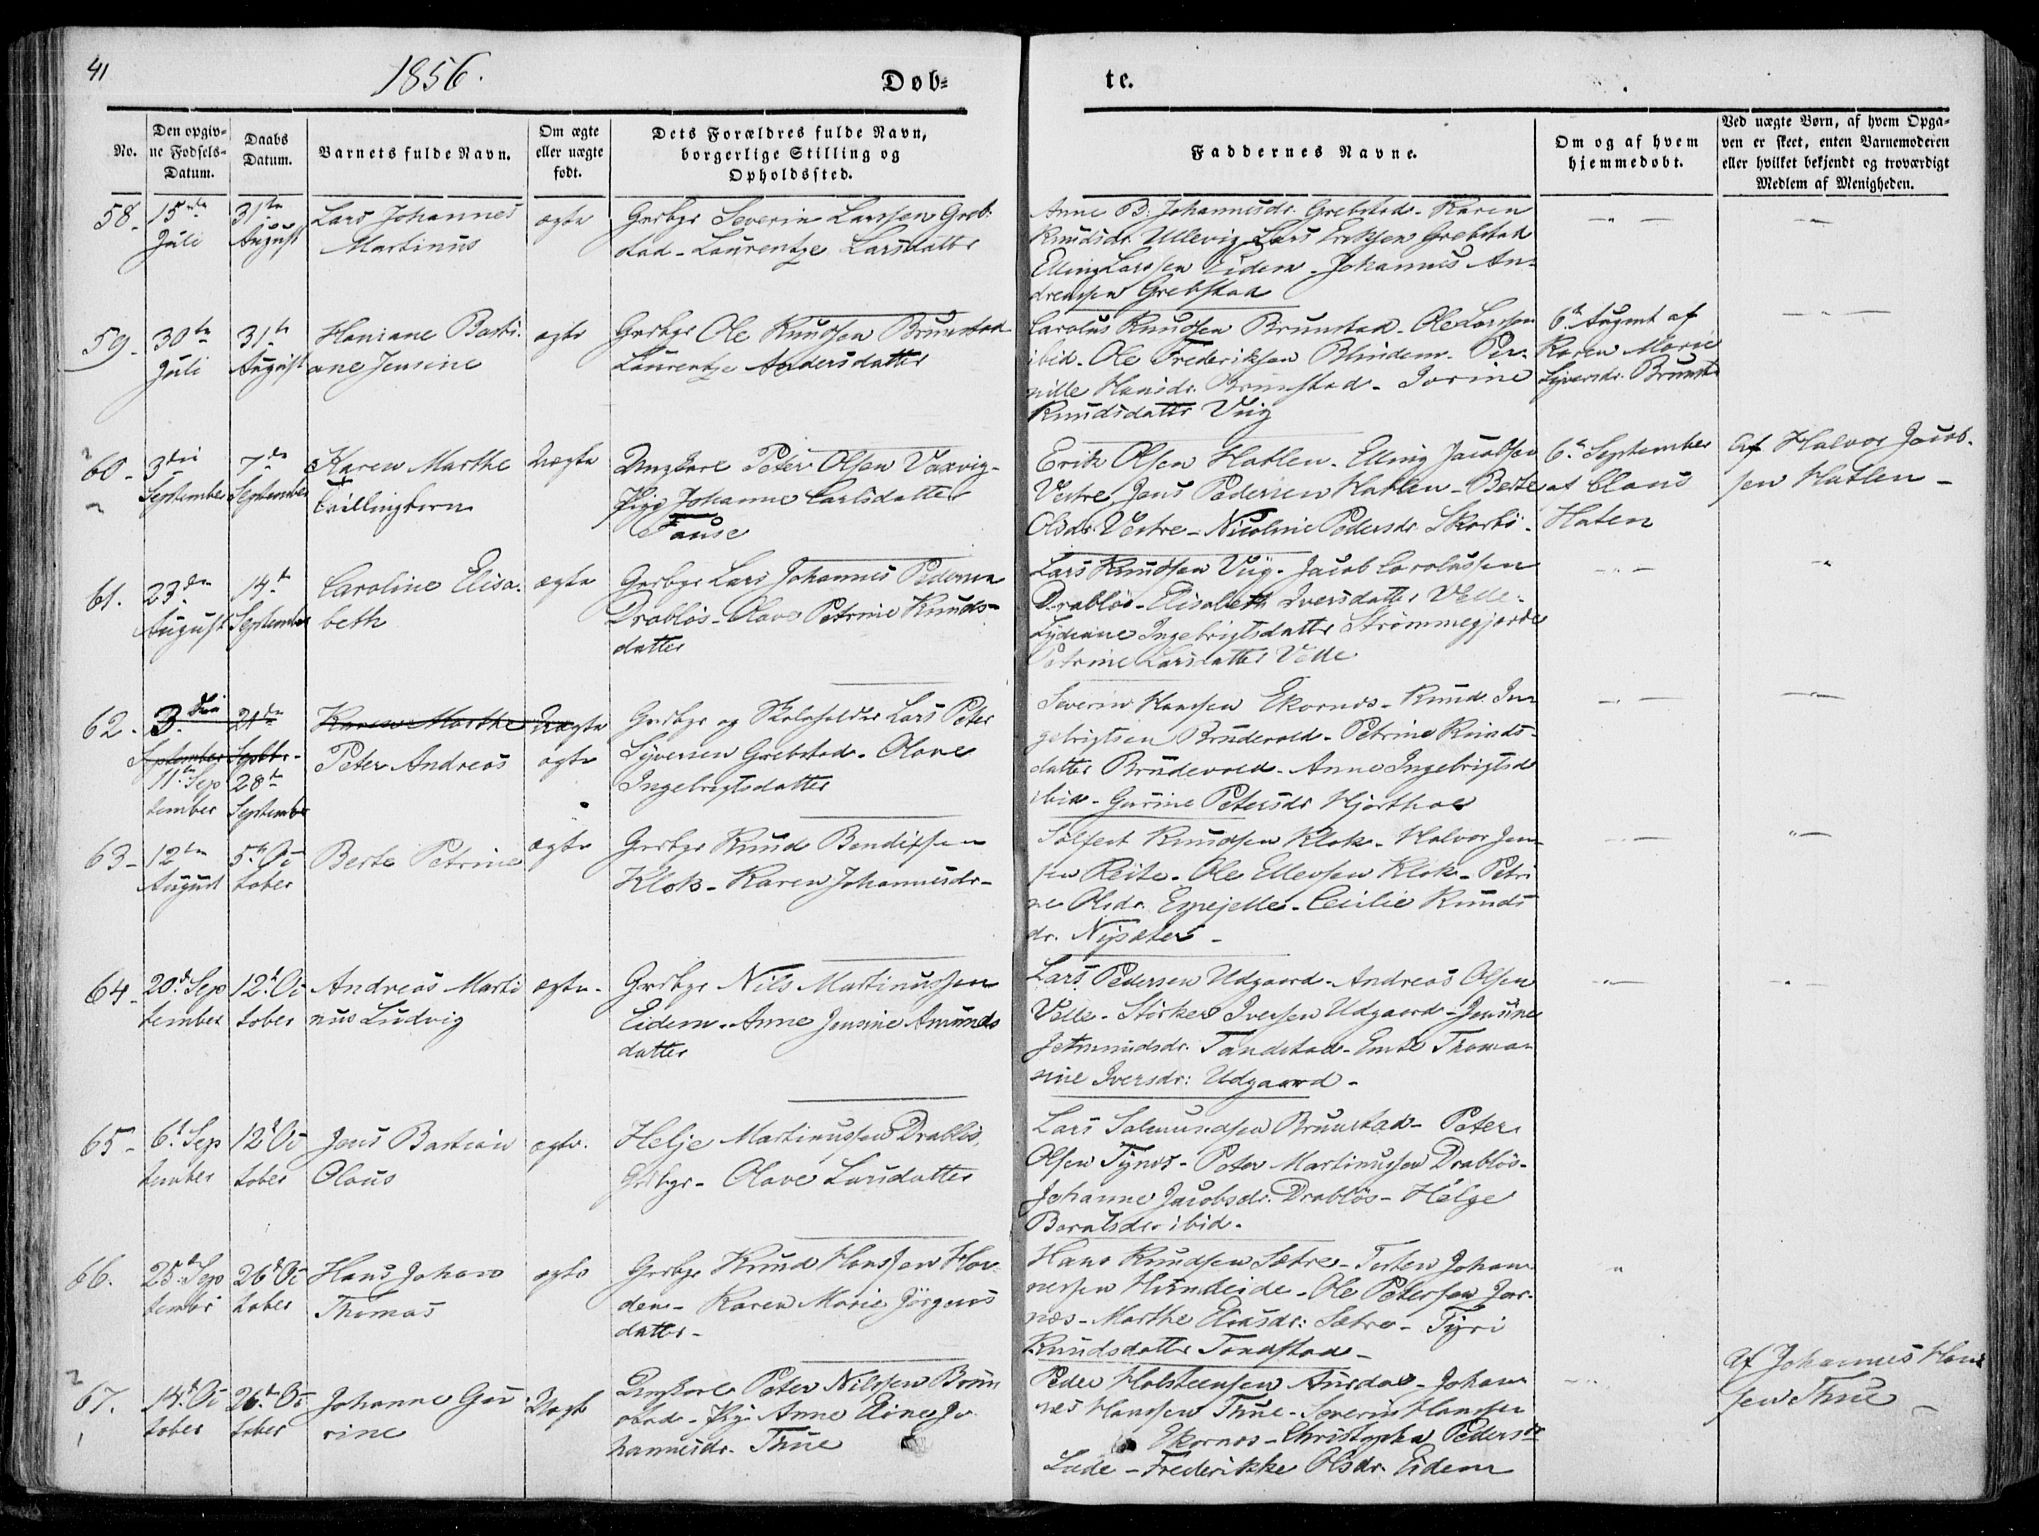 41
1856.
Døb-
te.
No.
Den opgiv-
ne Fødsels-
Datum.
Daabs
Datum.
Barnets fulde Navn.
Om ægte
eller uægte
født.
Dets Forældres fulde Navn,
borgerlige Stilling og
Opholdssted.
Faddernes Navne.
Om og af hvem
hjemmedøbt.
Ved uægte Børn, af hvem Opga-
ven er skeet, enten Barnemoderen
eller hvilket bekjendt og troværdigt
Medlem af Menigheden.
58.
15de
Juli
31te
August
Lars Johannes
Martinus
ægte
Grdbgr Severin Larssen Greb-
stad - Laurentze Larsdatter
Anne B. Johannesdr. Grebstad - Karen
Knudsdr. Ullevig - Lars Eriksen Grebstad
Elling Larssen Eidem - Johannes An-
dreassen Grebstad
59.
30te
Juli
31te
August
Haniane Basti-
ane Jensine
ægte
Grdbgr Ole Knudsen Brunstad
Laurentze Andersdatter
Carolus Knudsen Brunstad - Ole Larssen
ibid - Ole Frederiksen Blindem - Per-
nille Hansdr. Brunstad - Jorine
Knudsdatter Viig
6te August af
Karen Marie
Syversdr. Brunst.
60 -
3die
September
7de
September
Karen Marthe
Tvillingbørn
Uægte
Ungkarl Peter Olsen Vaxvig -
Pige Johanne Carlsdatter
Fause
Erik Olsen Hatlen - Elling Jacobsen
Vestre - Jens Pedersen Hatlen - Berte
Olsdr. Vestre - Nicoline Pedersdr. Skorbö.
6te September
af Claus
Haten
Af Halvor Jacob-
sen Hatlen -
61.
23de
August
14de
September
Caroline Elisa-
beth
ægte
Grdbgr Lars Johannes Pedersen
Drabløs - Olave Petrine Knuds-
datter
Lars Knudsen Viig - Jacob Carolussen
Drabløs - Elisabeth Iversdatter Velle -
Lydiane Ingebrigtsdatter Strømmegjerde
Petrine Larsdatter Velle
62.
3die
September
11te Sep
tember
21de
Septbr.
28de
September
Karen Marthe
Peter Andreas
Uægte
ægte
Grdbgr og Skoleholder Lars Peter
Syversen Grebstad - Olave
Ingebrigtsdatter
Severin Hanssen Ekornes - Knud In-
gebrigtsen Brudevold - Petrine Knuds-
datter Brudevold - Anne Ingebrigtsdr
ibid - Gurine Petersdr Hjorthol
63 -
12te
August
5te Oc
tober
Berte Petrine
ægte
Grdbgr Knud Bendixsen
Klok - Karen Johannesdr -
Solfest Knudsen Klok - Halvor Jen-
sen Reite - Ole Ellevsen Klok - Petri
ne Olsdr. Espejelle - Cecilie Knuds
dr. Nysæter -
64 -
20de Sep
tember
12te Oc
tober
Andreas Marti
nus Ludvig
ægte -
Grdbgr Nils Martinussen
Eidem - Anne Jensine Amunds
datter
Lars Pedersen Udgaard - Andreas Olsen
Velle - Størker Iversen Udgaard - Jensine
Jetmundsdr. Tandstad - Emte Thoma-
sine Iversdr: Udgaard -
65 -
6te Sep
tember
12te Oc
tober
Jens Bastian
Olaus
ægte.
Helje Martinussen Drabløs,
Grdbgr - Olave Larsdatter
Lars Salmundsen Brunstad - Peter
Olsen Tynes - Peter Martinussen Drabløs -
Johanne Jacobsdr. Drabløs - Helge
Baraldsdr ibid -
66.
25de Sep
tember
26de Oc
tober
Hans Johan
Thomas
ægte
Grdbgr Knud Hanssen Hav-
den - Karen Marie Jörgens
datter -
Hans Knudsen Sætre - Torsten Johan-
nessen Hundeide - Ole Petersen Jar-
næs - Marthe Eliasdr: Sætre - Tyri
Knudsdatter Tandstad -
67.
14de Oc
tober
26de Oc
tober
Johanne Gu
rine
Uægte
Ungkarl Peter Nilssen Brun
stad - Pige Anne Eline Jo-
hannesdr. Thue
Peder Holstensen Aursdal - Johan-
nes Hanssen Thue - Severin Hanssen
Ekornes - Christophe Pedersdr
Lade - Frederikke Olsdr. Eidem
Af Johannes Han
sen Thue